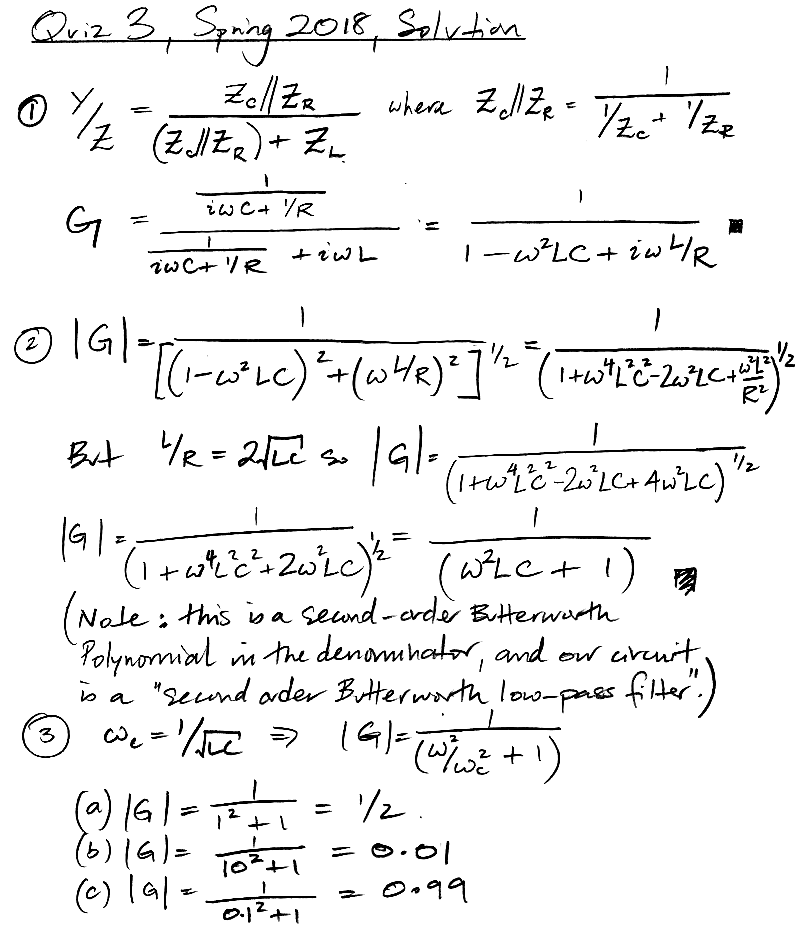 Quiz 3, Spring 2018, Solution
① Y/Z = Zc//ZR / ((Zc//ZR) + ZL) where Zc//ZR = 1 / (1/Zc + 1/ZR)
G = (1 / (iωC + 1/R)) / (1 / (iωC + 1/R) + iωL) = 1 / (1 - ω²LC + iωL/R) ■
② |G| = 1 / [(1-ω²LC)² + (ωL/R)²]^1/2 = 1 / (1+ω⁴L²C²-2ω²LC+ω²L²/R²)^1/2
But L/R = 2√LC so |G| = 1 / (1+ω⁴L²C²-2ω²LC+4ω²LC)^1/2
|G| = 1 / (1+ω⁴L²C²+2ω²LC)^1/2 = 1 / (ω²LC + 1) ■
(Note: this is a second-order Butterworth
Polynomial in the denominator, and our circuit
is a "second order Butterworth low-pass filter".)
③ ωc = 1/√LC ⇒ |G| = 1 / (ω²/ωc² + 1)
(a) |G| = 1 / (1²+1) = 1/2.
(b) |G| = 1 / (10²+1) = 0.01
(c) |G| = 1 / (0.1²+1) = 0.99